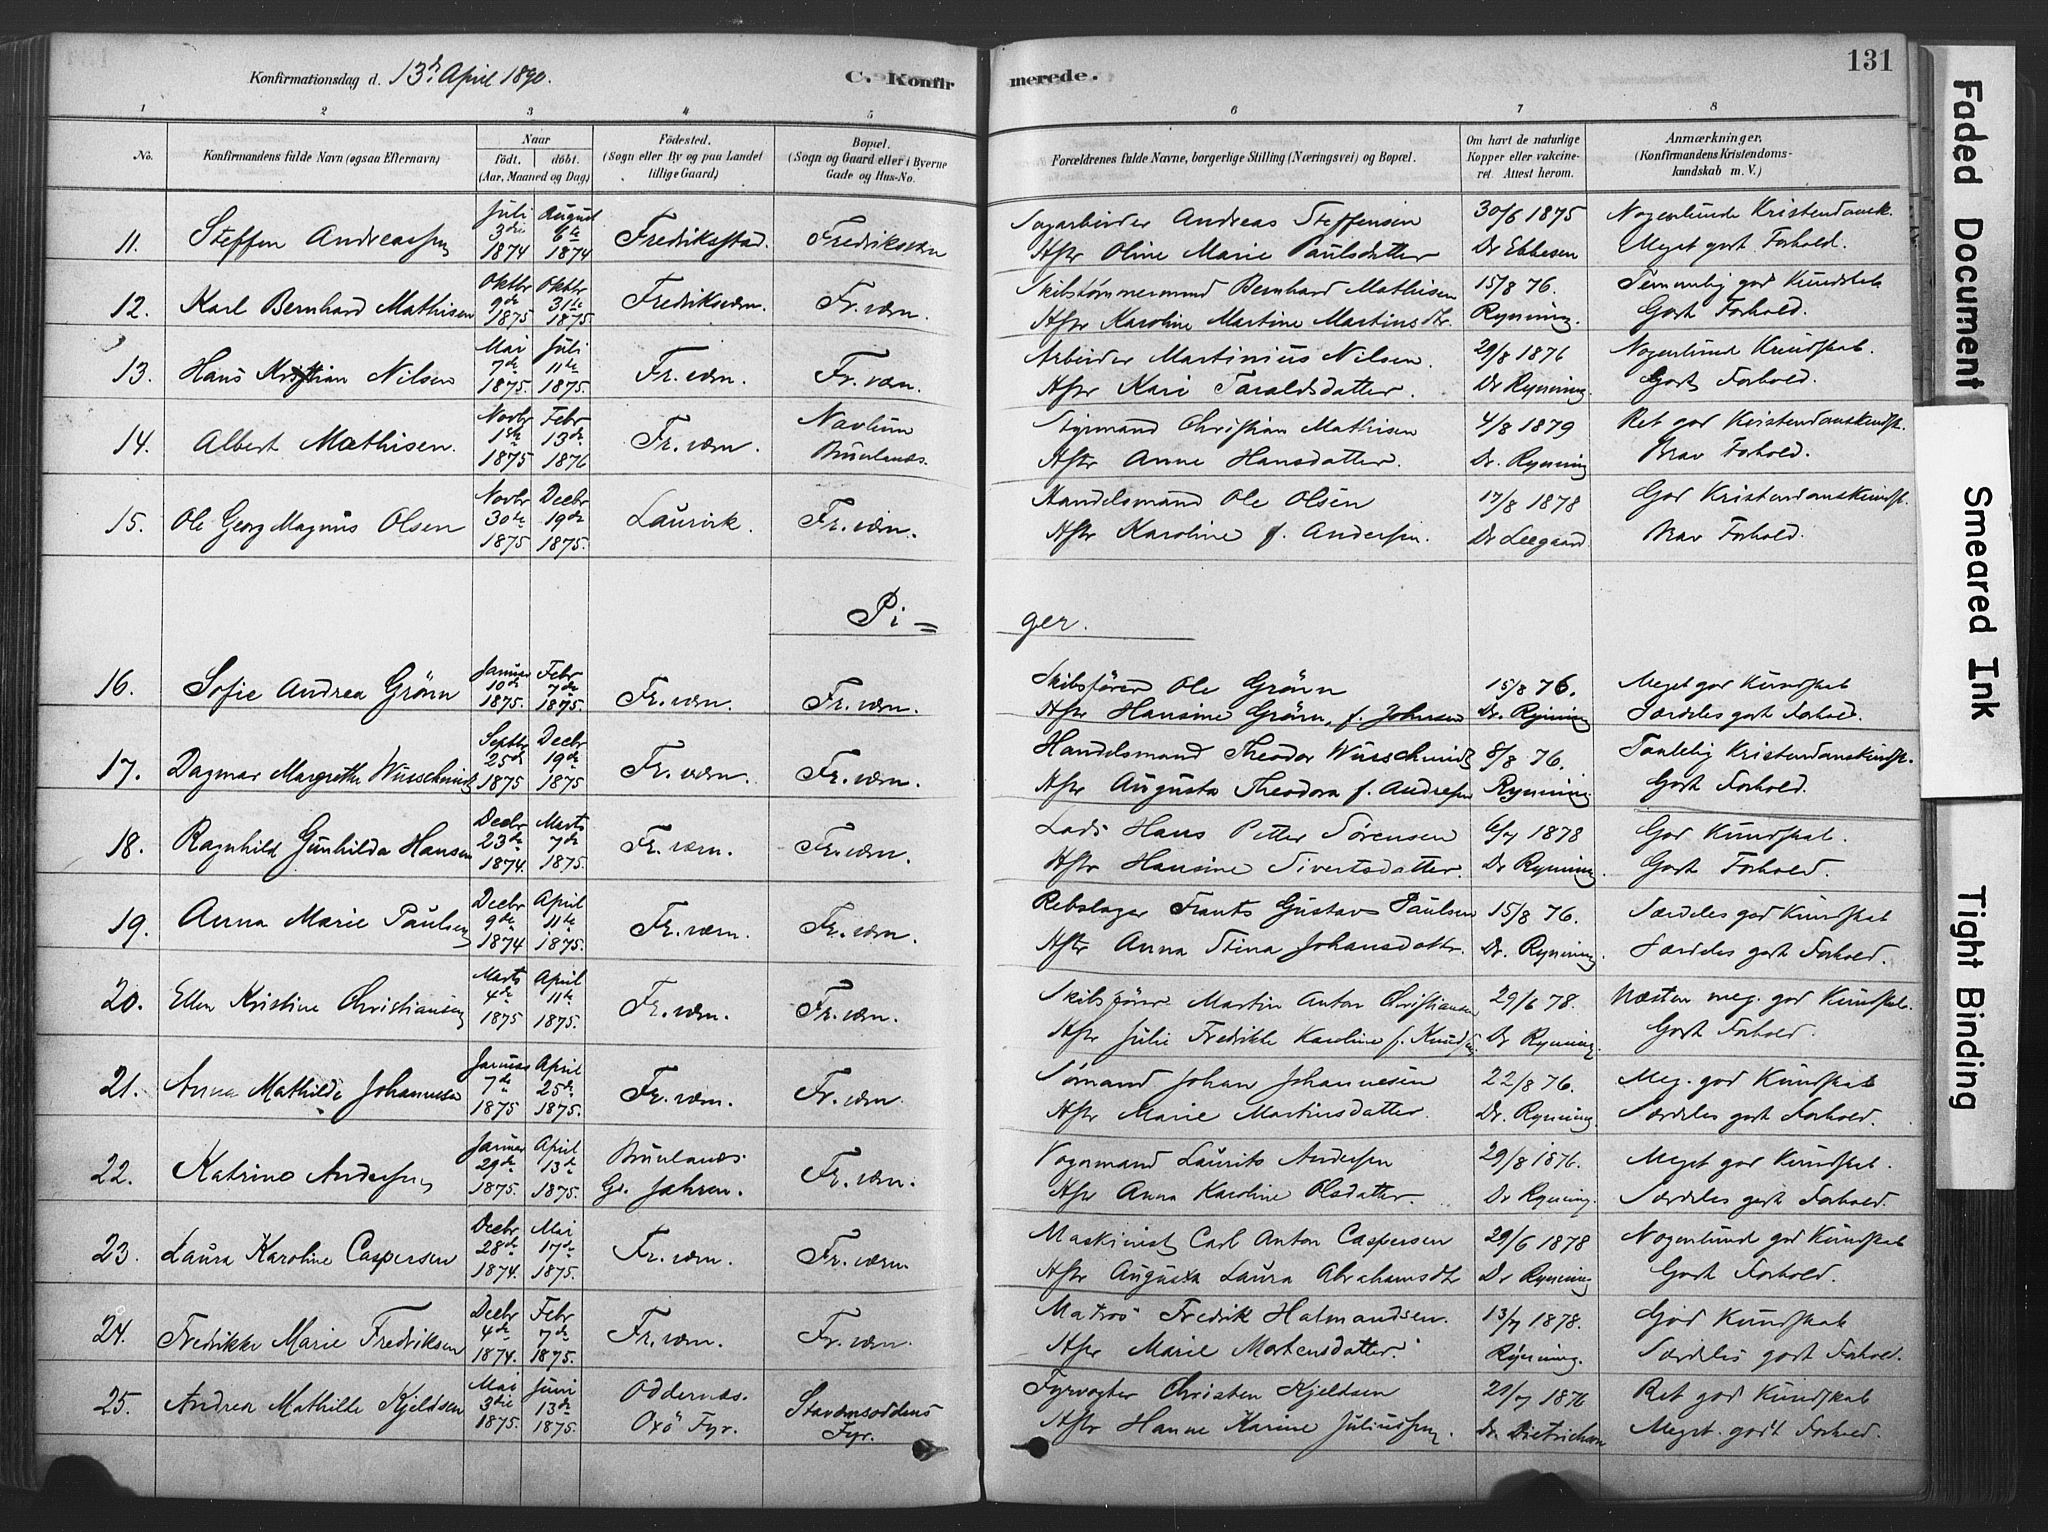 Konfirmationsdag d. 13de April 1890.
C. Konfirmerede.
131
1 2 3 4 5 6 7 8
No.
Konfirmandens fulde Navn (ogsaa Efternavn)
Naar
födt. döbt.
(Aar, Maaned og Dag)
Födested.
(Sogn eller By og paa Landet
tillige Gaard)
Bopæl.
(Sogn og Gaard eller i Byerne
Gade og Hus-No.
Forældrenes fulde Navne, borgerlige Stilling (Næringsvei) og Bopæl.
Om havt de naturlige
Kopper eller vakcine-
ret. Attest herom.
Anmærkninger,
(Konfirmandens Kristendoms-
kundskab m. V.)
11. Steffen Andreassen Juli 3die 1874 August 6te 1874 Fredriksstad. Fredriksværn Sagarbeider Andreas Steffensen 30/6 1875 Nogenlunde Kristendomsk.
Hstr Oline Marie Paulsdatter Dr Ebbesen Meget godt Forhold.
12. Karl Bernhard Mathisen Oktbr 9de 1875 Oktbr 31te 1875. Fredriksværn. Fr.værn. Skibstømmermand Bernhard Mathisen 15/8 76. Temmelig god Kundskab
Hstr Karoline Martine Martinsdtr. Rynning. Godt Forhold.
13. Hans Kristian Nilsen Mai 7de 1875 Juli 11te 1875. Fr.værn. Fr.værn. Arbeider Martinius Nilsen. 29/8 1876 Nogenlund Kundskab.
Hstr Kari Taraldsdatter. Dr Rynning. Godt Forhold.
14. Albert Mathisen. Novbr 1ste 1875 Febr 13de 1876 Fr.værn. Navlum Brunlanæs. Styrmand Christian Mathisen 4/8 1879 Ret god Kristendomskundsk.
Hstr Anne Hansdatter. Dr. Rynning Brav Forhold.
15. Ole Georg Magnus Olsen Novbr 30te 1875 Decbr 19de 1875. Laurvik. Fr.værn. Handelsmand Ole Olsen 17/8 1878 God Kristendomskundsk.
Hstr Karoline f. Andersen. Dr Leegaard. Brav Forhold.
Pi=
ger.
16. Sofie Andrea Grönn Januar 10de 1875. Febr 7de 1875. Fr.værn. Fr.værn. Skibsfører Ole Grönn 15/8 76. Meget god Kundskab
Hstr Hansine Grönn, f. Johnsen Dr. Rynning Særdeles godt Forhold.
17. Dagmar Margrethe Wusschmidt Septbr 25de 1875 Decbr 19de 1875 Fr.værn. Fr.værn. Handelsmand Theodor Wusschmidt 8/8 76. Taalelig Kristendomskundsk.
Hstr Augusta Theodora f. Andresen Rynning Godt Forhold.
18. Ragnhild Gunhilda Hansen Decbr 23de 1874. Marts 7de 1875. Fr.værn. Fr.værn. Lods Hans Petter Sørensen 6/7 1878 God Kundskab.
Hstr Hansine Sivertsdatter. Dr Rynning. Godt Forhold.
19. Anna Marie Paulsen Decbr 9de 1874 April 11te 1875. Fr.værn. Fr.værn. Rebslager Frants Gustav Paulsen 15/8 76. Særdeles god Kundskab
Hstr Anna Stina Johansdatter. Dr. Rynning. Særdeles godt Forhold.
20. Ellen Kristine Christiansen Marts 4de 1875 April 11te 1875. Fr.værn. Fr.værn. Skibsfører Martin Anton Christiansen 29/6 78. Næsten meg. god Kundskab.
Hstr Julie Fredrikke Karoline f. Knudsen Dr Rynning. Godt Forhold.
21. Anna Mathilde Johannesen Januar 7de 1875 April 25de 1875. Fr.værn. Fr.værn. Sømand Johan Johannesen 22/8 76. Meg. god Kundskab
Hstr Marie Martinsdatter. Dr. Rynning. Særdeles godt Forhold.
22. Katrine Andersen Januar 29de 1875. April 13de 1875. Brunlanæs. Gd. Jahren. Fr.værn. Vognmand Laurits Andersen 29/8 1876. Meget god Kundskab.
Hstr Anna Karoline Olsdatter. Dr Rynning. Særdeles godt Forhold.
23. Laura Karoline Caspersen Decbr 28de 1874. Mai 17de 1875. Fr.værn. Fr.værn Maskinist Carl Anton Caspersen 29/6 1878 Nogenlund god Kundskab
Hstr Augusta Laura Abrahamsdt Dr Rynning Godt Forhold.
24. Fredrikke Marie Fredriksen Decbr 4de 1874. Febr 7de 1875. Fr.værn. Fr.værn. Matros Fredrik Halmandsen. 13/7 1878. God Kundskab
Hstr Marie Mortensdatter. Rynning. Særdeles godt Forhold.
25. Andrea Mathilde Kjeldsen Mai 3die 1875. Juni 13de 1875. Oddernæs. Oxö Fyr. Stavernsoddens Fyr. Fyrvogter Christen Kjeldsen 21/7 1876 Ret god Kundskab
Hstr Hanne Karine Juliussen. Dr. Dietrichson Meget godt Forhold.
Faded Document
Smeared Ink
Tight Binding